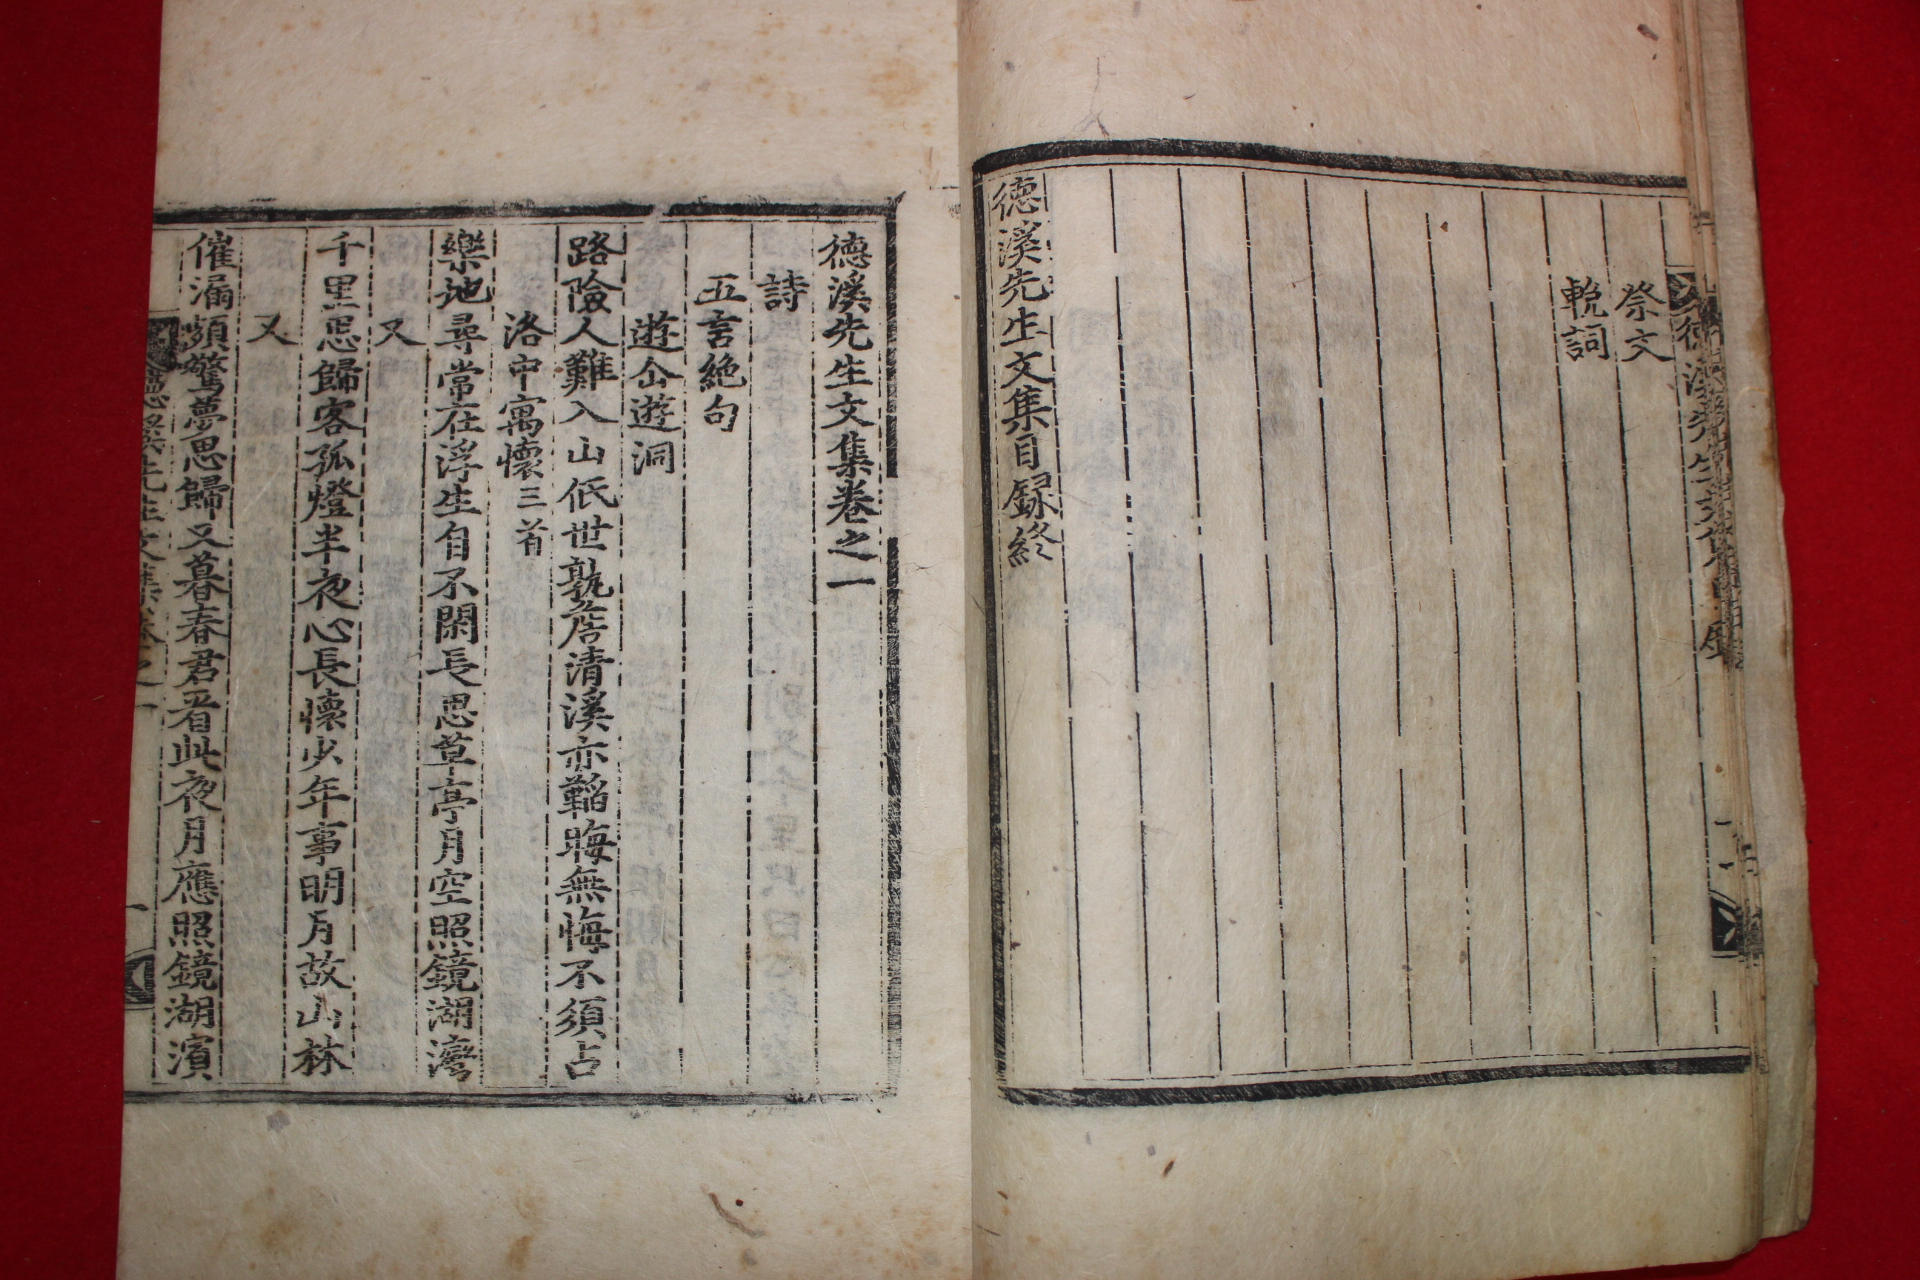 祭文
輓詞
德溪先生文集目錄終
德溪先生文集卷之一
詩
五言絶句
遊仚遊洞
路險人難入山低世孰居清溪亦韜晦無悔不須占
洛中寓懷三首
樂地尋常在浮生自不閑長思草亭月空照鏡湖灣
又
千里思歸客孤燈半夜心長懷少年事明月故山林
又
催漏頻驚夢思歸又暮春君看此夜月應照鏡湖濱